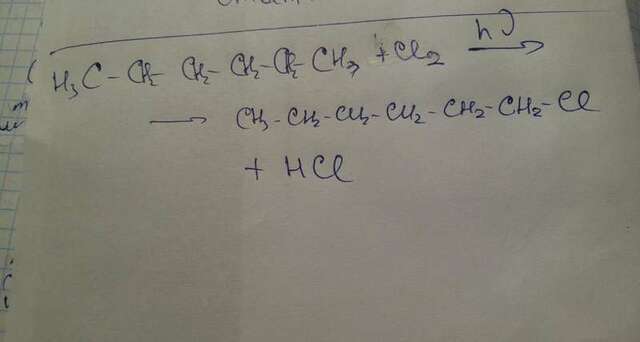 H₃C - CH₂ - CH₂ - CH₂ - CH₂ - CH₃ + Cl₂ hν →
→ CH₃ - CH₂ - CH₂ - CH₂ - CH₂ - CH₂ - Cl
+ HCl